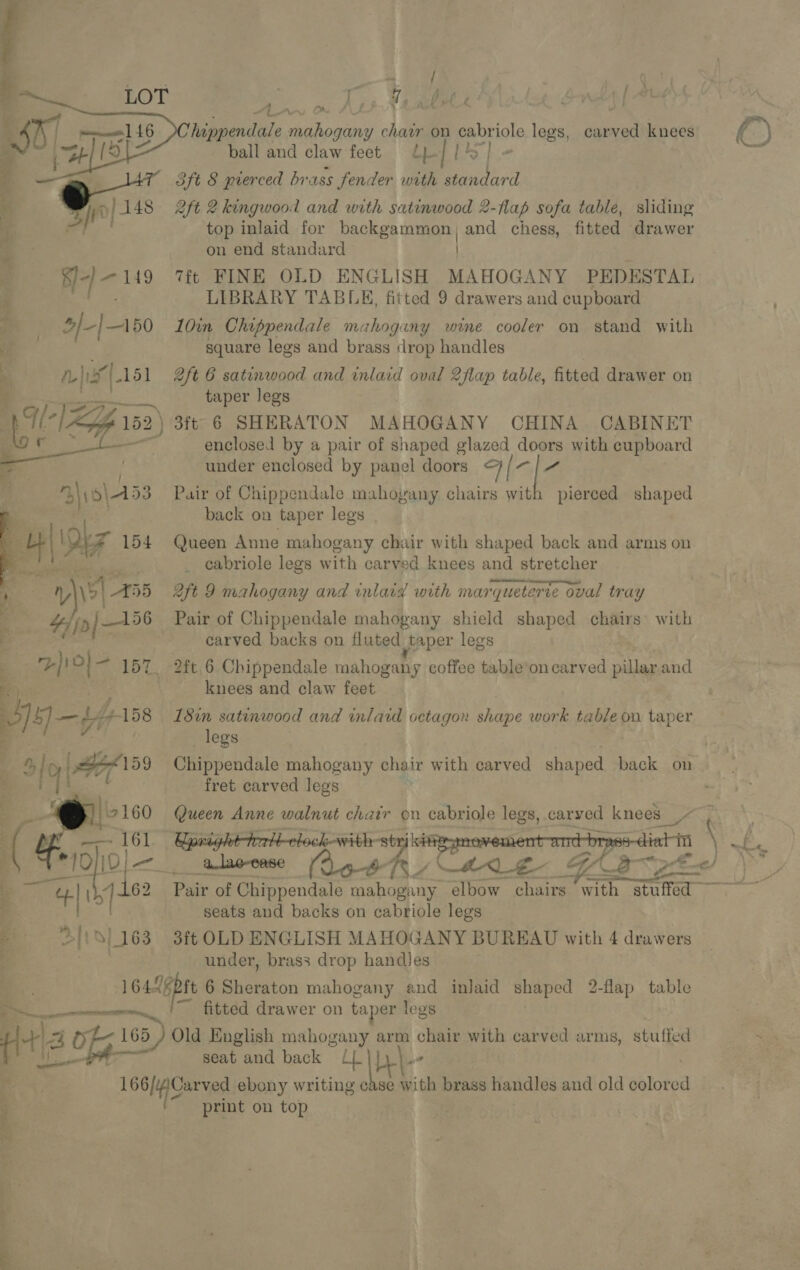 LOT
146 Chippendale mahogany chair on cabriole legs, carved knees
ball and claw feet
147 3ft 8 pierced brass fender with standard
148 2ft 2 kingwood and with satinwood 2-flap sofa table, sliding
top inlaid for backgammon and chess, fitted drawer
on end standard
149 7ft FINE OLD ENGLISH MAHOGANY PEDESTAL
LIBRARY TABLE, fitted 9 drawers and cupboard
150 10in Chippendale mahogany wine cooler on stand with
square legs and brass drop handles
151 2ft 6 satinwood and inlaid oval 2flap table, fitted drawer on
taper legs
152 3ft 6 SHERATON MAHOGANY CHINA CABINET
enclosed by a pair of shaped glazed doors with cupboard
under enclosed by panel doors
153 Pair of Chippendale mahogany chairs with pierced shaped
back on taper legs
154 Queen Anne mahogany chair with shaped back and arms on
cabriole legs with carved knees and stretcher
155 2ft 9 mahogany and inlaid with marqueterie oval tray
156 Pair of Chippendale mahogany shield shaped chairs with
carved backs on fluted taper legs
157 2ft 6 Chippendale mahogany coffee table on carved pillar and
knees and claw feet
158 18in satinwood and inlaid octagon shape work table on taper
legs
159 Chippendale mahogany chair with carved shaped back on
fret carved legs
160 Queen Anne walnut chair on cabriole legs, carved knees
161 Upright hall clock with striking movement and brass dial in
a lac case
162 Pair of Chippendale mahogany elbow chairs with stuffed
seats and backs on cabriole legs
163 3ft OLD ENGLISH MAHOGANY BUREAU with 4 drawers
under, brass drop handles
164 2ft 6 Sheraton mahogany and inlaid shaped 2-flap table
fitted drawer on taper legs
165 Old English mahogany arm chair with carved arms, stuffed
seat and back
166 Carved ebony writing case with brass handles and old colored
print on top